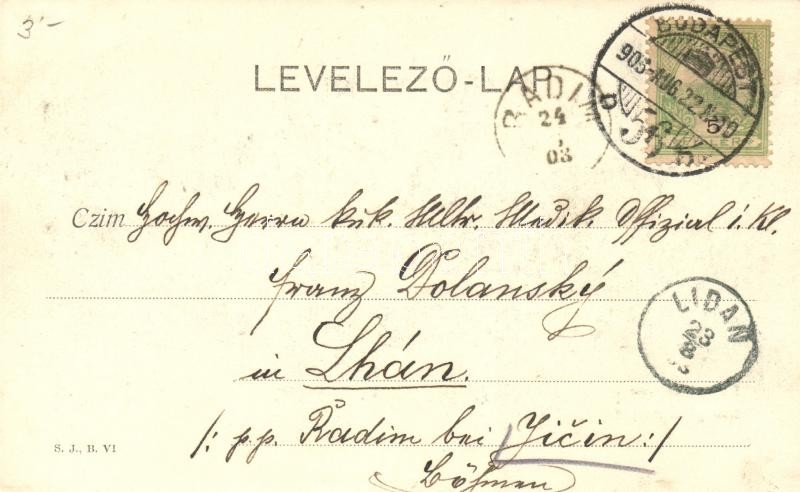 3'-
LEVELEZŐ-LAP
BUDAPEST
903 AUG. 22
D
56
RADIM
24
03
Czim Hochw. Herrn kuk. Mltr. Medik. Offizial i. Kl.
Franz Dolanský
LIBAŇ
23
8
in Lhán.
/: p.p. Radim bei Jičin :/
Böhmen
S. J., B. VI